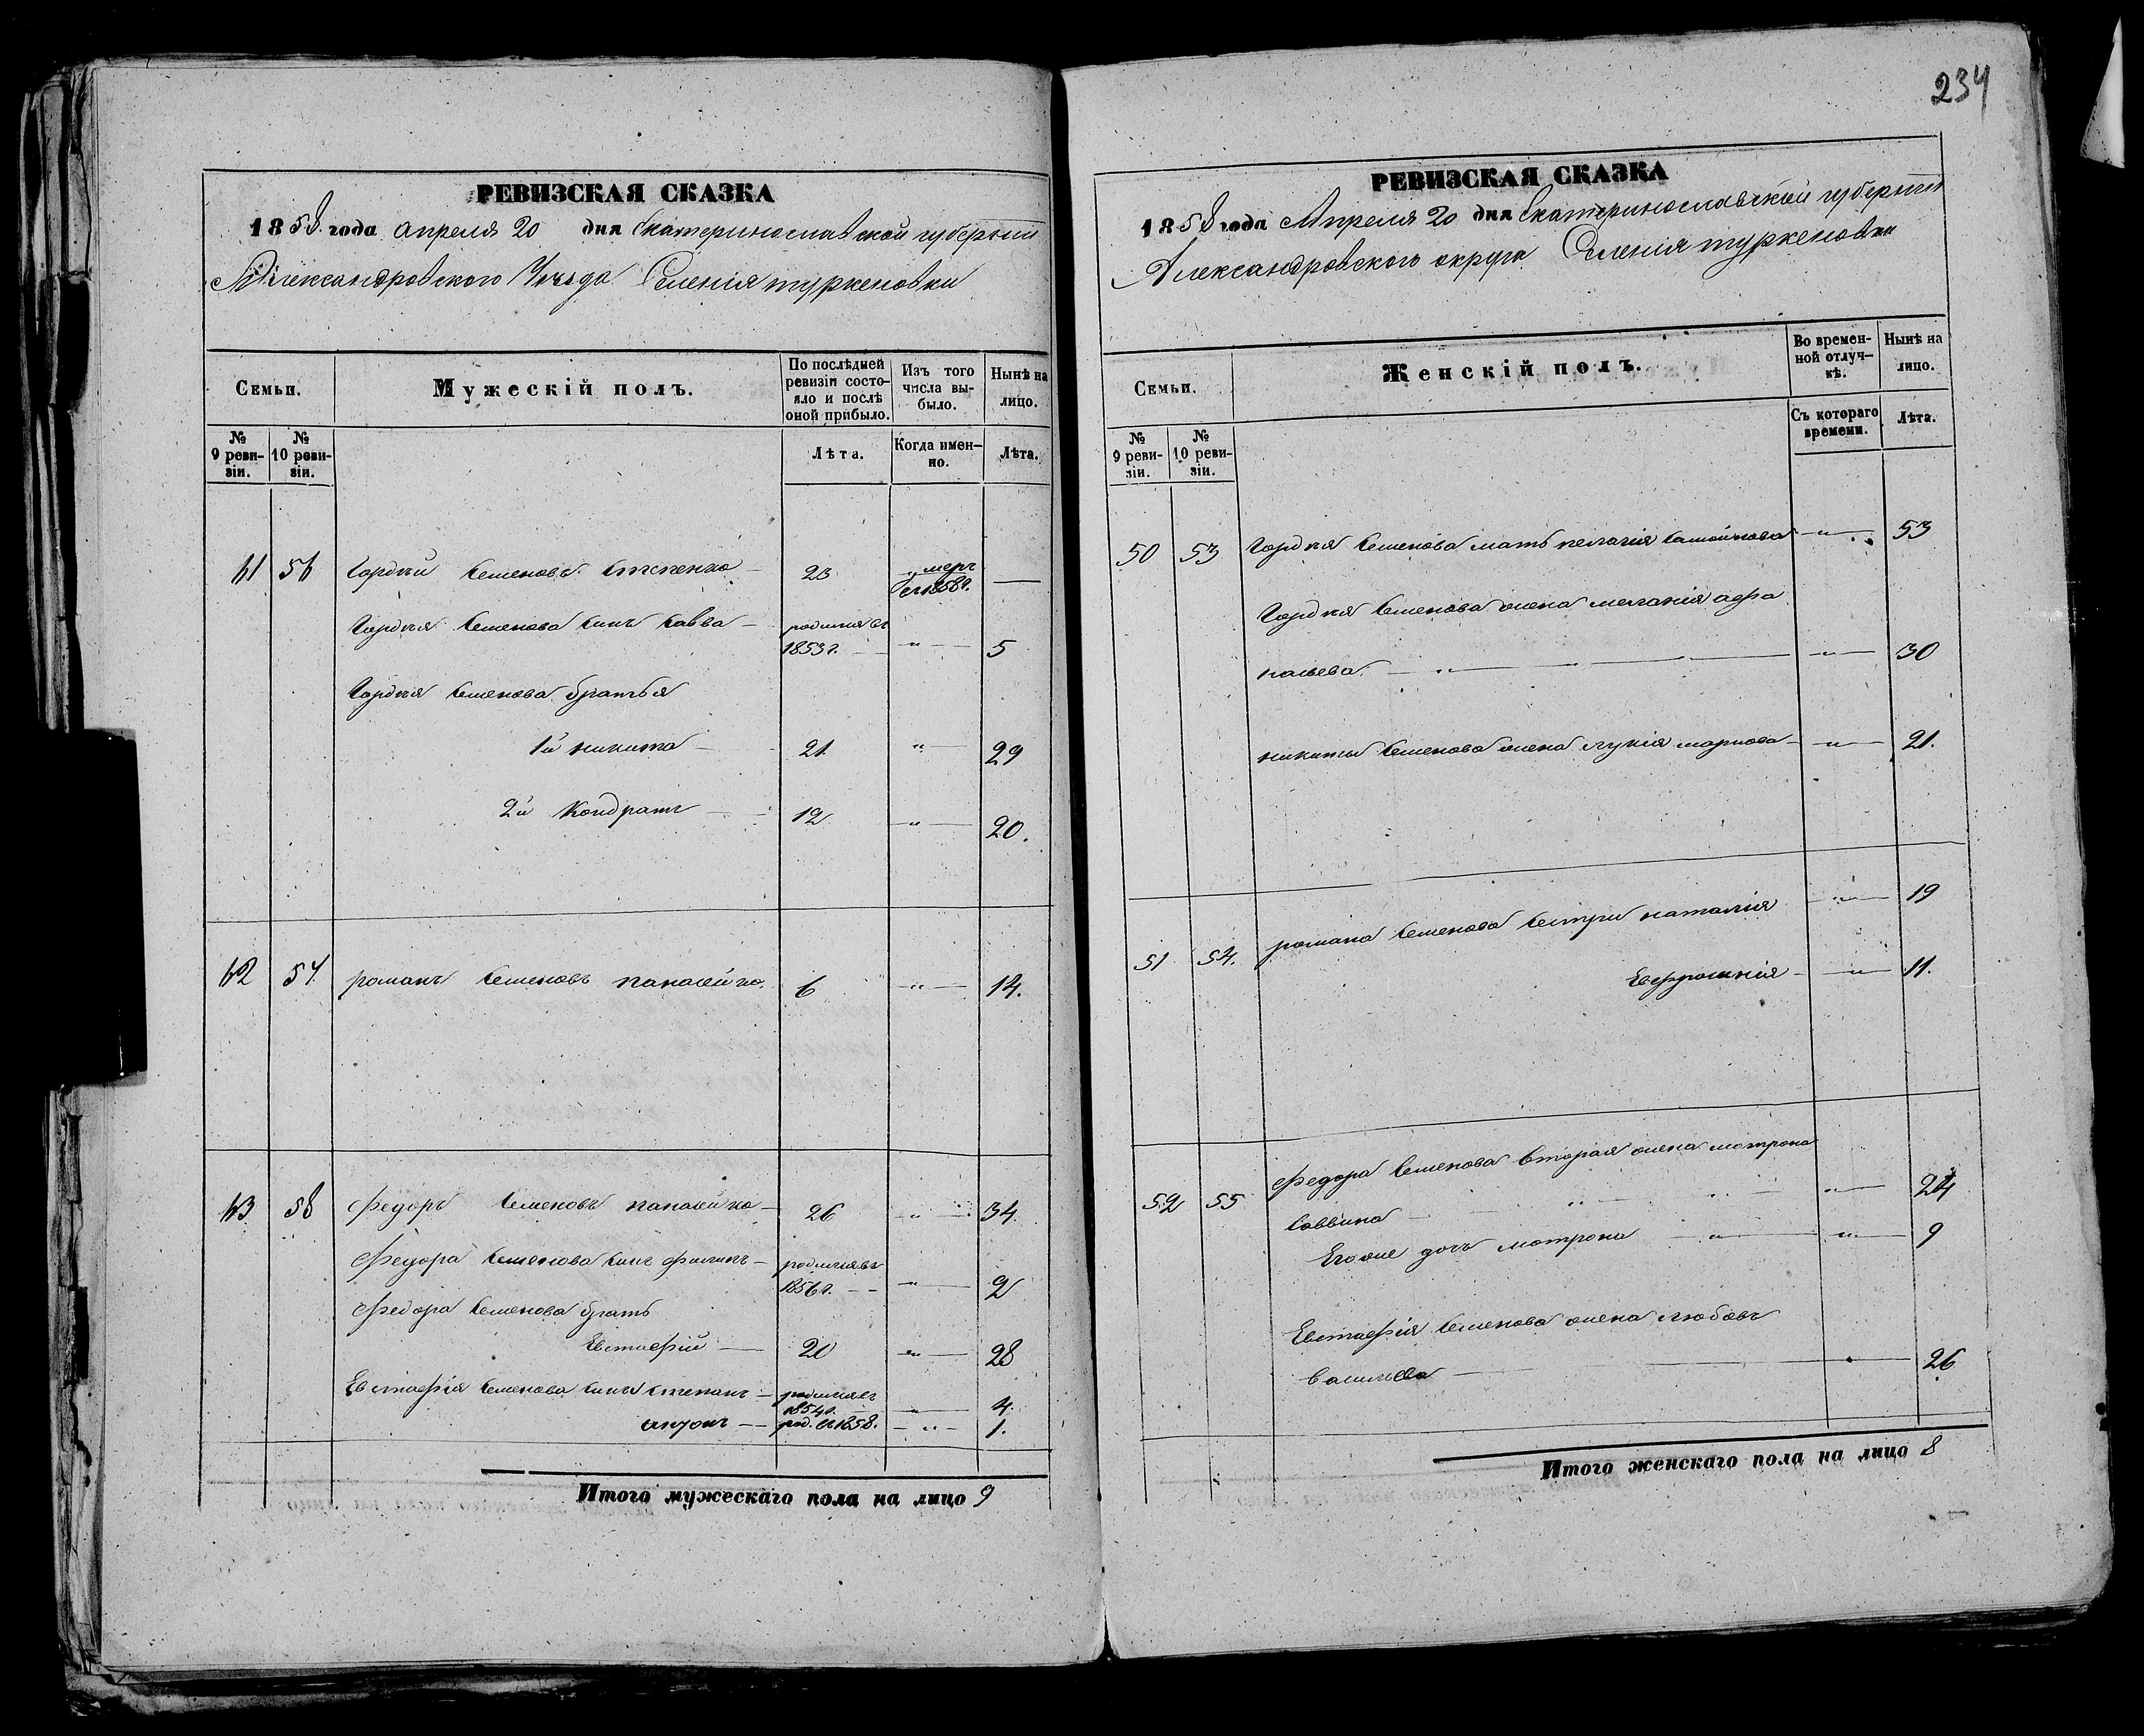 234
РЕВИЗСКАЯ СКАЗКА
1858 года апреля 20 дня Екатеринославской губернии
Александровского Уезда Селенія туркеновки
Семьи.
Мужескій полъ.
По послѣдней ревизіи состояло и послѣ оной прибыло.
Изъ того числа выбыло.
Нынѣ на лицо.
№ 9 ревизіи.
№ 10 ревизіи.
Лѣта.
Когда именно.
Лѣта.
56 Гордѣй Семеновъ 23 умеръ 1858г. —
Гордѣя Семенова сынъ Савва — родился въ 1853г. — " — 5
Гордѣя Семенова братья
1й никита — 21 " 29
2й Кондратъ — 12 — " — 20.
романъ Семеновъ панасейко. 6 — " — 14.
58 Федоръ Семеновъ панасейко — 26 — " — 34.
Федора Семенова сынъ филипъ — родился въ 1856г. — " — 2
Федора Семенова братъ
Евстафій — 20 — " — 28
Евстафія Семенова сынъ степанъ — родился въ 1854г. — " — 4.
— род. въ 1858. — " — 1.
Итого мужескаго пола на лицо 9
РЕВИЗСКАЯ СКАЗКА
1858 года Апреля 20 дня Екатеринославской губернии
Александровского округа Селенія туркеновки
Семьи.
Женскій полъ.
Во временной отлучкѣ.
Нынѣ на лицо.
№ 9 ревизіи.
№ 10 ревизіи.
Съ котораго времени.
Лѣта.
50 53 Гордѣя Семенова мать пелагія самойлова — " — 53
Гордѣя Семенова жена меланія афа
насьева — " — — " — 30
никиты Семенова жена лукія маркова — " — 21.
51 54. романа Семенова сестры наталія — " — 19
Евфросинія — " — 11.
52 55 Федора Семенова вторая жена мотрона
саввина — " — " — " — 24
Его же дочь мотрона — " — " — 9
Евстафія Семенова жена любовь
васильева — — 26
Итого женскаго пола на лицо 8